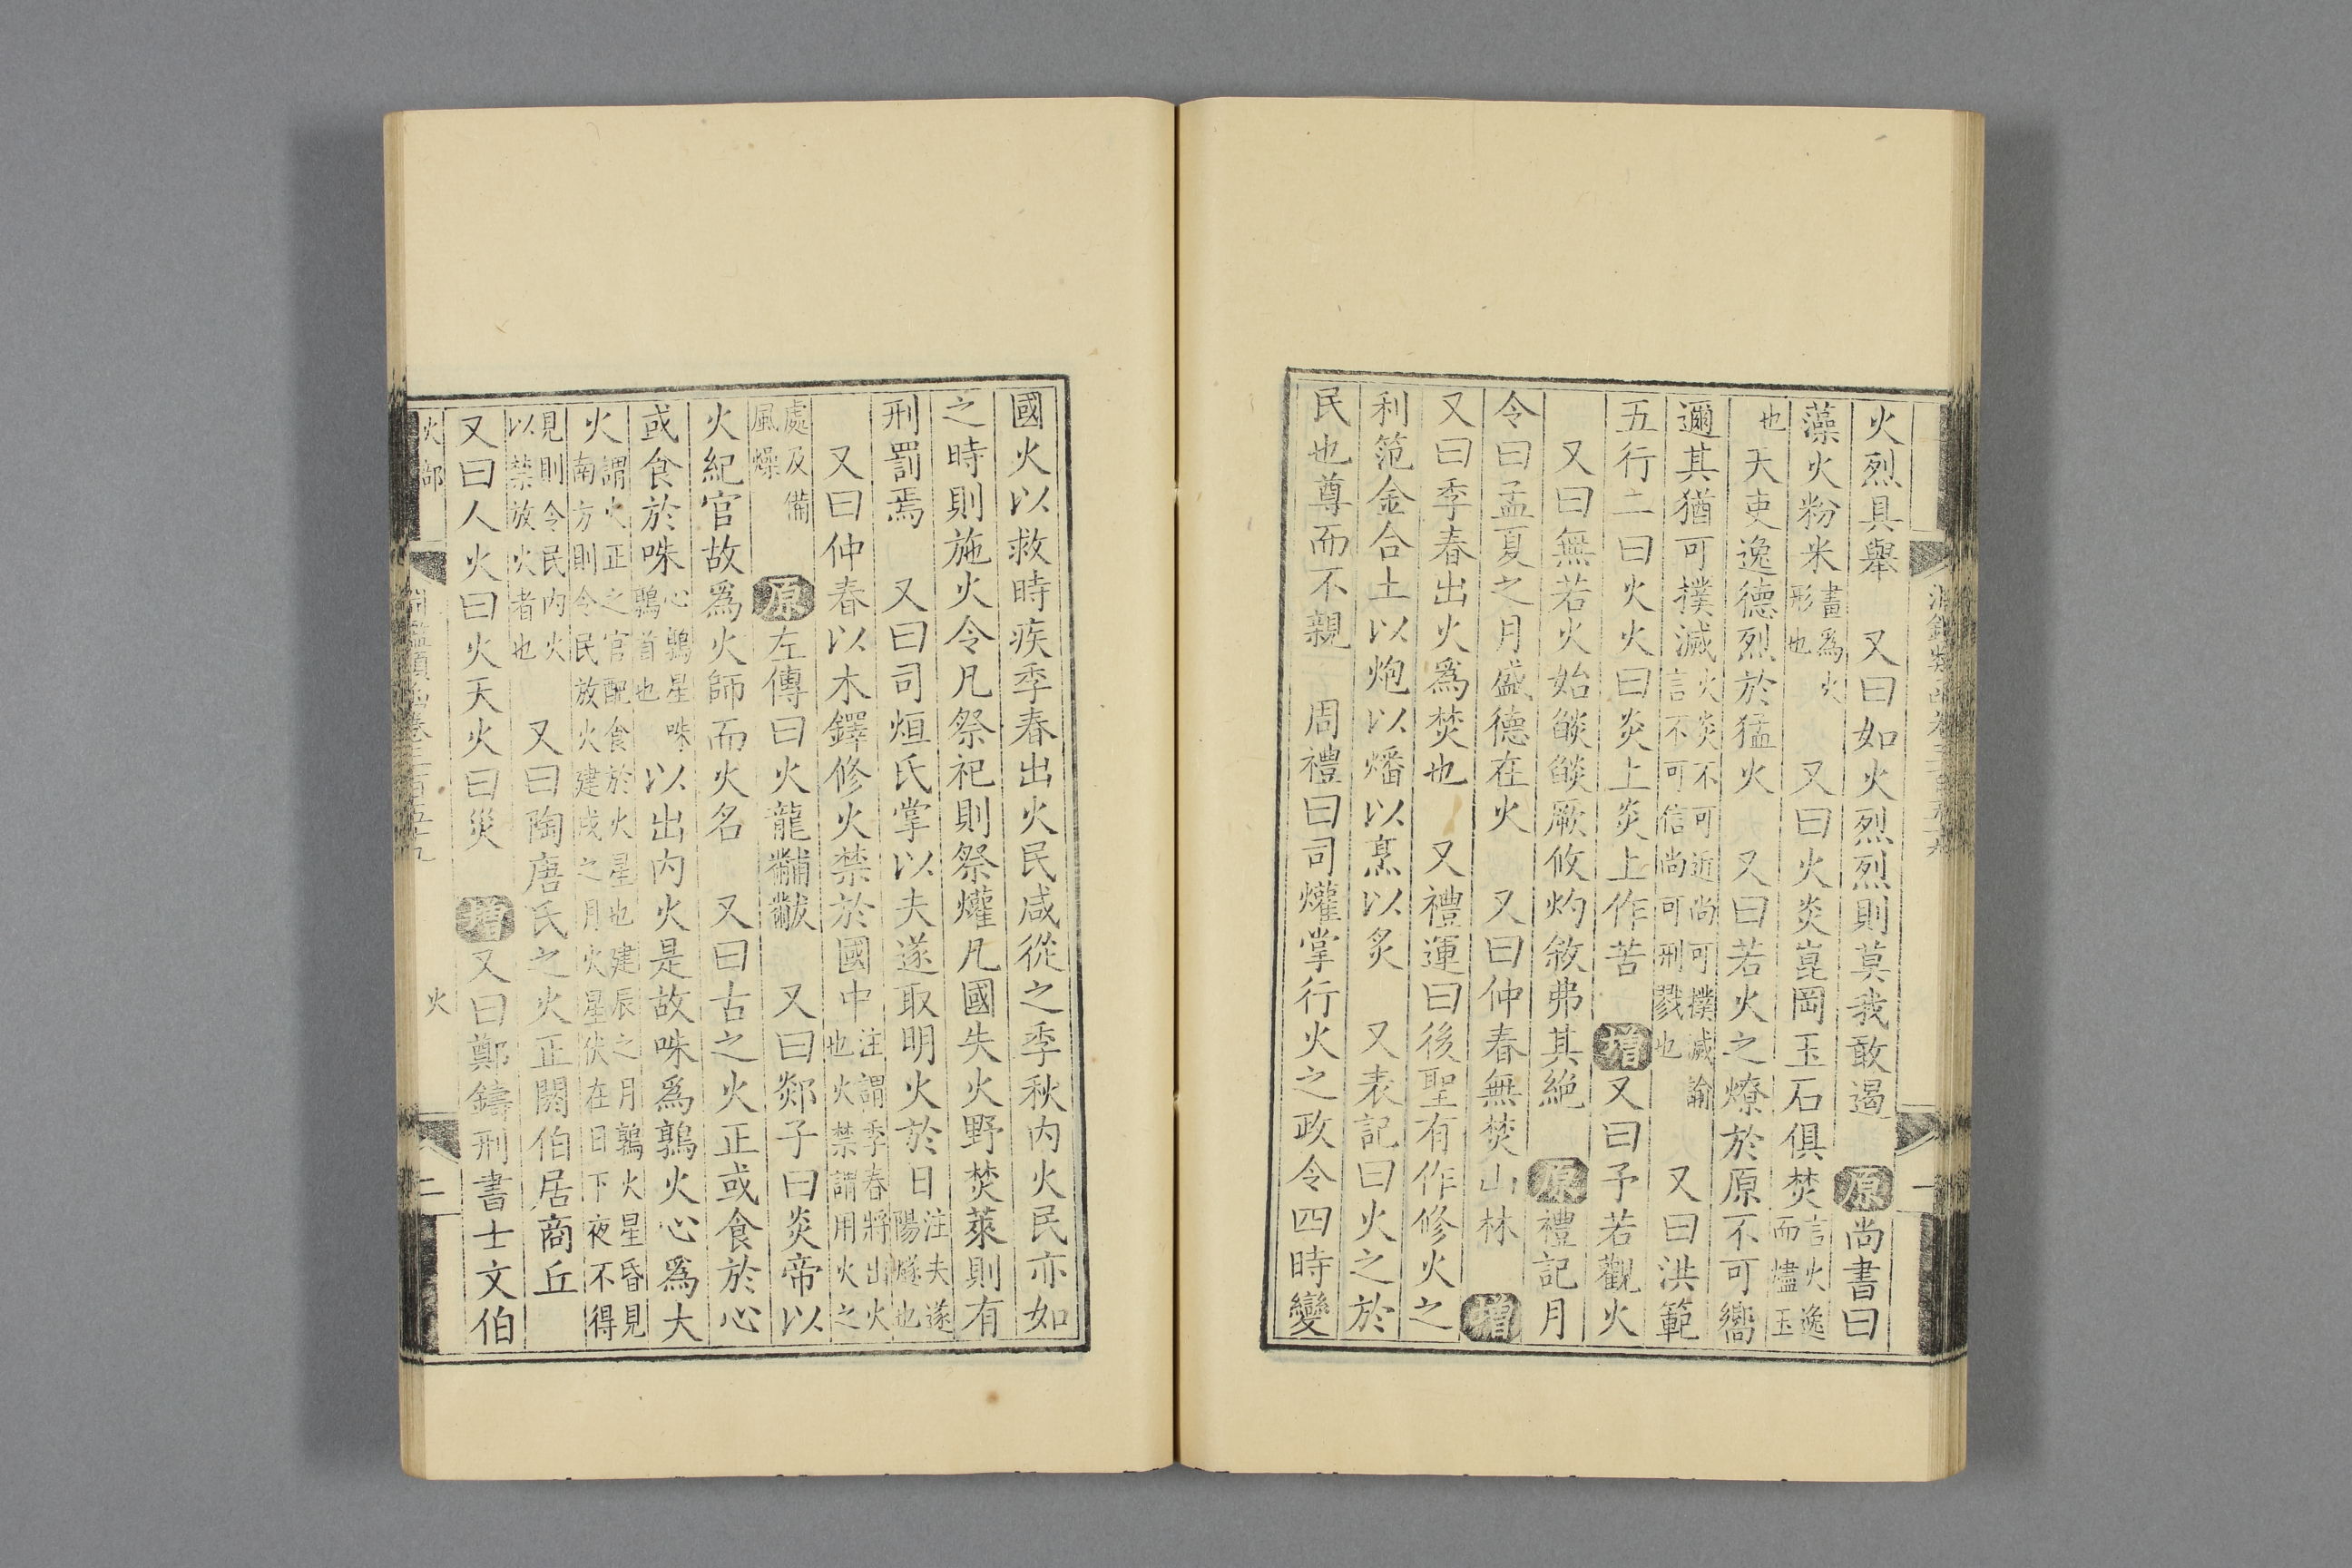 火烈具舉　又曰如火烈烈則莫我敢遏　原尚書曰
藻火粉米畫爲火形也　又曰火炎崑岡玉石俱焚言火逸而燼玉
也　天吏逸德烈於猛火　又曰若火之燎於原不可嚮
邇其猶可撲滅火炎不可近尚可撲滅諭言不可信尚可刑戮也　又曰洪範
五行二曰火火曰炎上炎上作苦　增又曰予若觀火
又曰無若火始燄燄厥攸灼敘弗其絶　原禮記月
令曰孟夏之月盛德在火　又曰仲春無焚山林　增
又曰季春出火爲焚也　又禮運曰後聖有作修火之
利笵金合土以炮以燔以烹以炙　又表記曰火之於
民也尊而不親　周禮曰司爟掌行火之政令四時變
國火以救時疾季春出火民咸從之季秋内火民亦如
之時則施火令凡祭祀則祭爟凡國失火野焚萊則有
刑罰焉　又曰司烜氏掌以夫遂取明火於日注夫遂陽燧也
又曰仲春以木鐸修火禁於國中注謂季春將出火也火禁謂用火之
處及備風燥　原左傳曰火龍黼黻　又曰郯子曰炎帝以
火紀官故爲火師而火名　又曰古之火正或食於心
或食於咮心鶉星咮鶉首也以出内火是故咮爲鶉火心爲大
火謂火正之官配食於火星也建辰之月鶉火星昏見南方則令民放火建戌之月火星伏在日下夜不得
見則令民内火以禁放火者也　又曰陶唐氏之火正閼伯居商丘
又曰人火曰火天火曰災　增又曰鄭鑄刑書士文伯
火部　淵鑑類函卷三百五十九　火　二